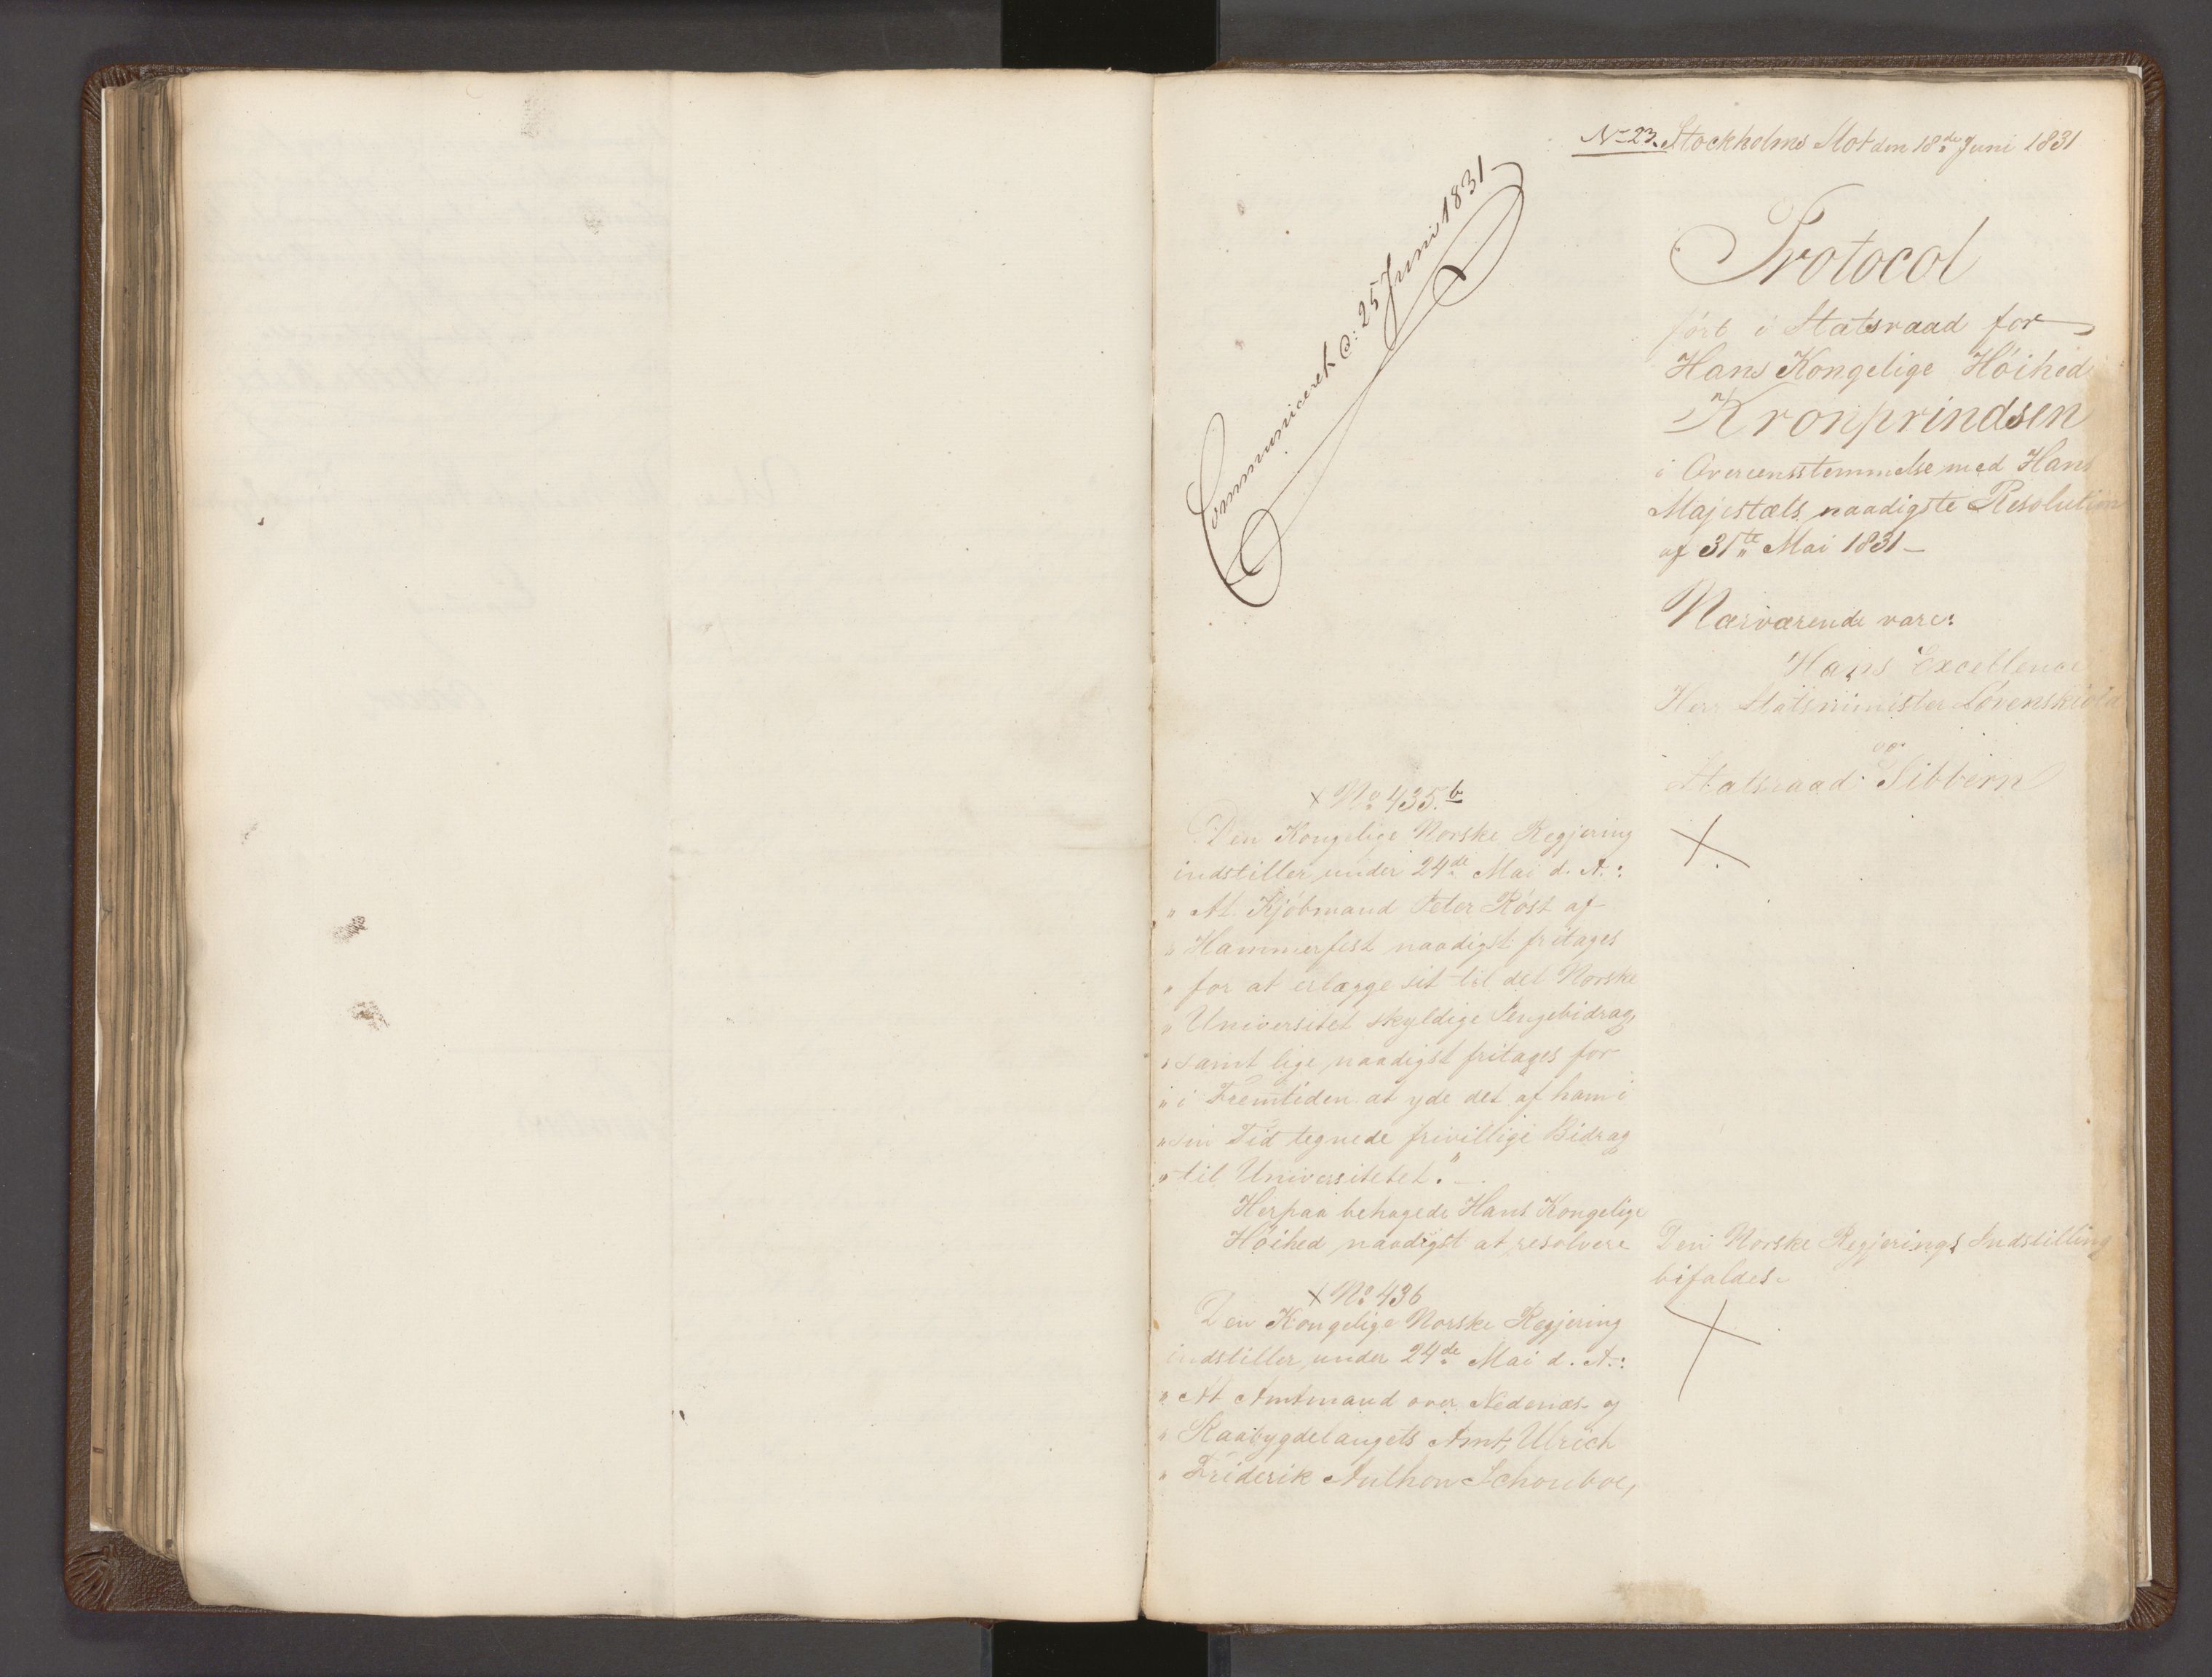 No 23. Stockholms Slot den 18de Juni 1831
Communiceret d: 25 Juni 1831
Protocol
ført i Statsraad for
Hans Kongelige Høihed
Kronprindsen
i Overeensstemmelse med Hans
Majestæts naadigste Resolution
af 31te Mai 1831 –
Nærværende vare:
Hans Excellence
Herr Statsminister Løvenskiold
og
Statsraad Sibbern
+ No 435.b
Den Kongelige Norske Regjering
indstiller under 24de Mai d. A.:
" At Kjøbmand Peter Røst af
" Hammerfest naadigst fritages
" for at erlægge sit til det Norske
" Universitet skyldige Pengebidrag,
" samt lige naadigst fritages for
" i Fremtiden at yde det af ham i
" sin Tid tegnede frivillige Bidrag
" til Universitetet." –
Herpaa behagede Hans Kongelige
Høihed naadigst at resolvere
Den Norske Regjerings Indstilling
bifaldes.
+ No 436
Den Kongelige Norske Regjering
indstiller under 24de Mai d. A.:
" At Amtmand over Nedenæs- og
" Raabygdelaugets Amt, Ulrich
" Friderik Anthon Schouboe,